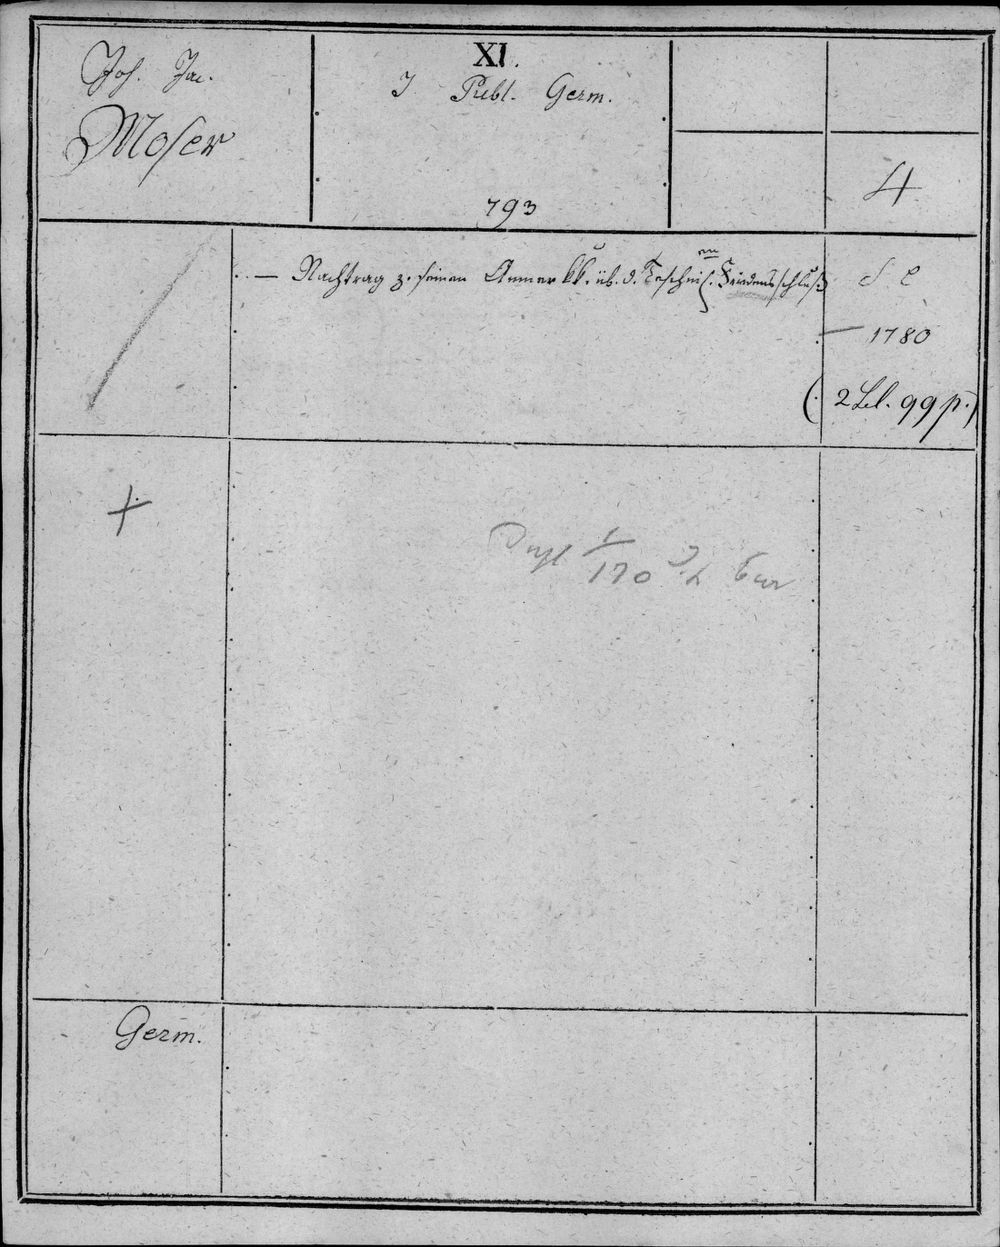 Joh. Jac.
Moser
XI.
J Publ. Germ.
793
4
— Nachtrag z. seinen Anmerkk. üb. d. Teschnis. Friedensschluß
S l
— 1780
(2 Bl. 99 p.)
+
170
Germ.